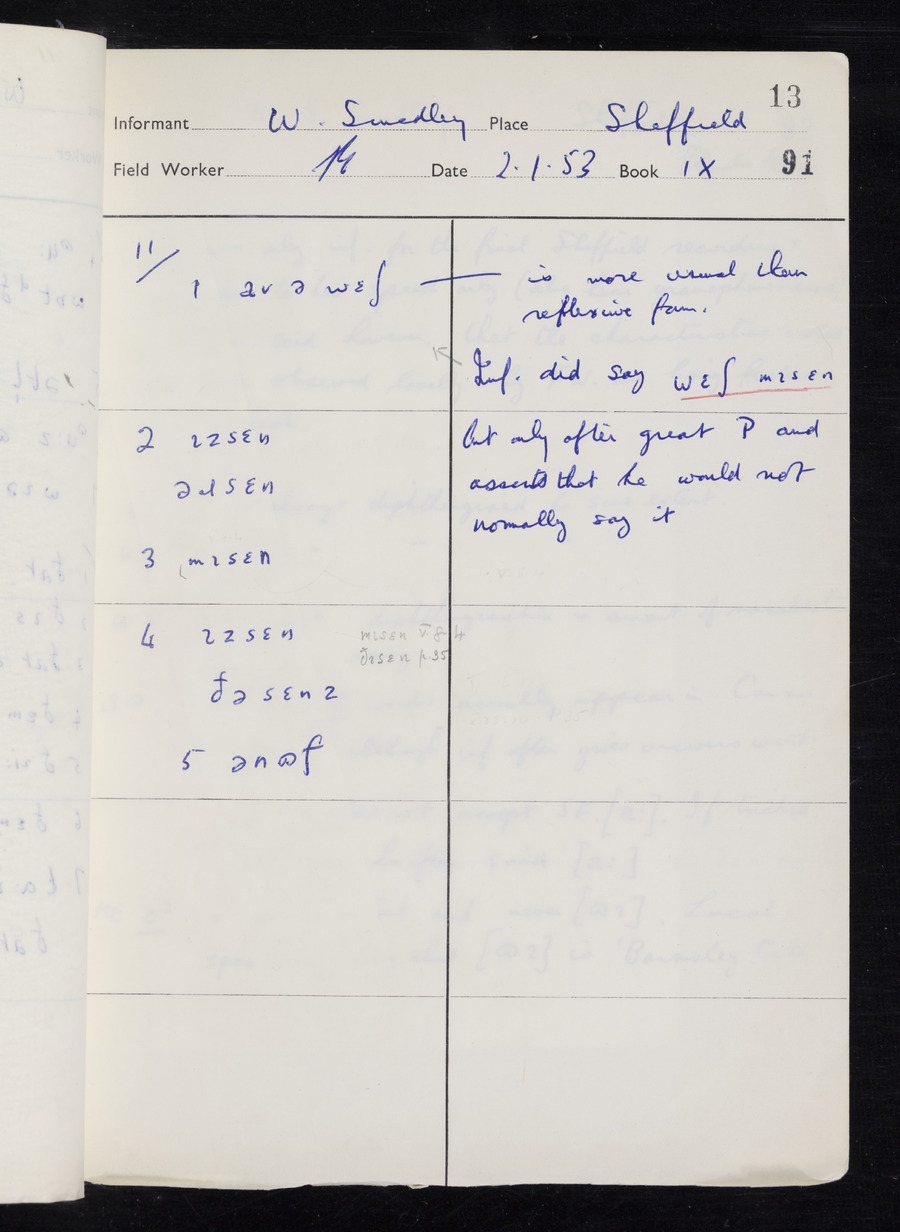 13
Informant W. Smedley Place Sheffield
Field Worker Date 2.1.53 Book IX 91
11/
1 av ə wɛʃ — is more usual than
reflexive form.
Inf. did say wɛʃ mɪsɛn
but only after great P and
asserts that he would not
normally say it
2 ɪzsɛn
əɪsɛn
3 mɪsɛn
4 ɪzsɛn
mɪsɛn V.8.4
ðɪsɛn p.35
ðəsɛnz
5 ənɷf